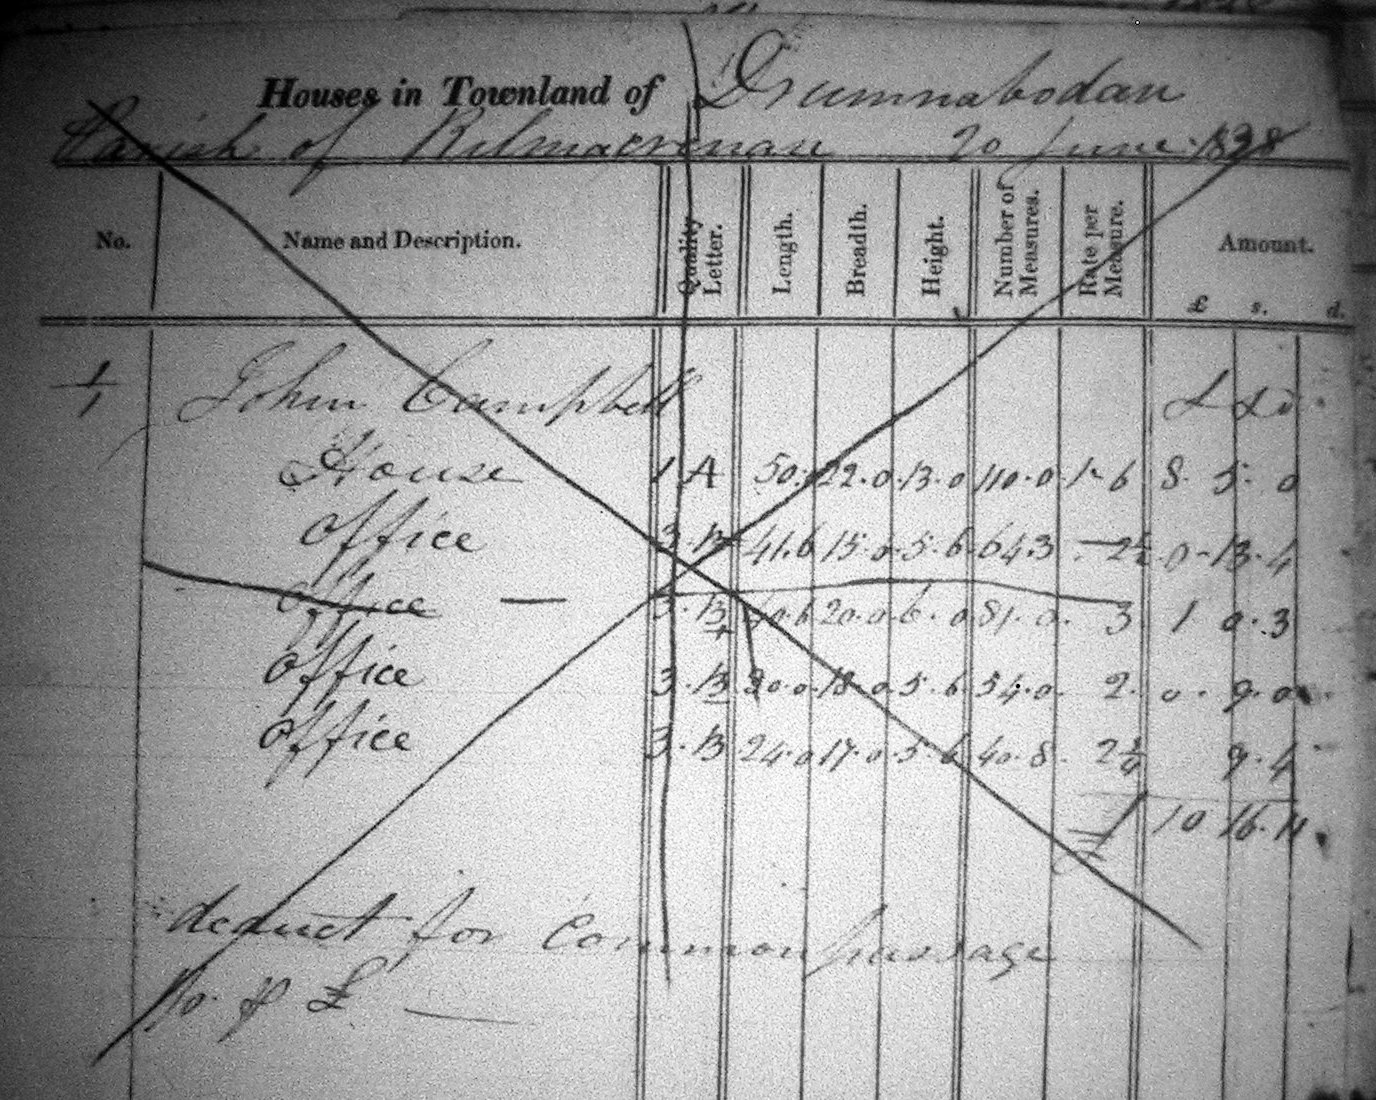 Houses in Townland of Drumnabodan
Parish of Kilmacrenan 20 June 1838
No. Name and Description. Quality Letter. Length. Breadth. Height. Number of Measures. Rate per Measure. Amount.
£ s. d.
1/1 John Campbell £ s d
House 1 A 50. 22.0 13.0 110.0 1-6 8. 5. 0
Office 3.B+ 41.6 15.0 5.6 64.3 -2½ 0-13.4
Office — 3.B+ 40.6 20.0 6.0 81.0. 3 1 0.3
Office 3.B 30.0 18.0 5.6 54.0. 2. 0. 9.0
Office 3.B 24.0 17.0 5.6 40.8. 2¼ 9.4
£ 10 16.11
deduct for Common passage